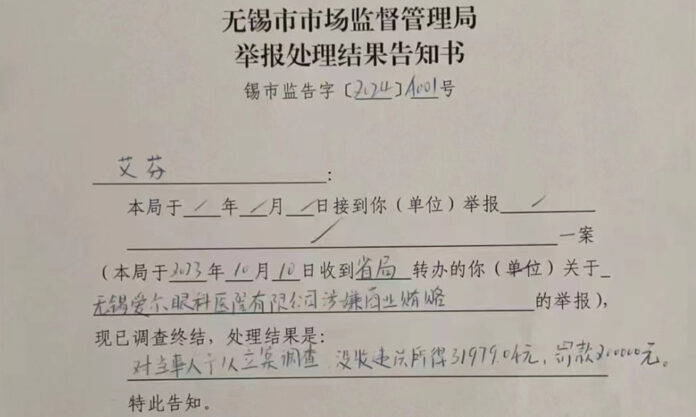 无锡市市场监督管理局
举报处理结果告知书
锡市监告字〔2024〕A001号
艾芬：
本局于/年/月/日接到你（单位）举报/
/一案
（本局于2023年10月10日收到省局转办的你（单位）关于
无锡爱尔眼科医院有限公司涉嫌商业贿赂的举报），
现已调查终结，处理结果是：
对当事人予以立案调查 没收违法所得31979.04元、罚款200000元。
特此告知。